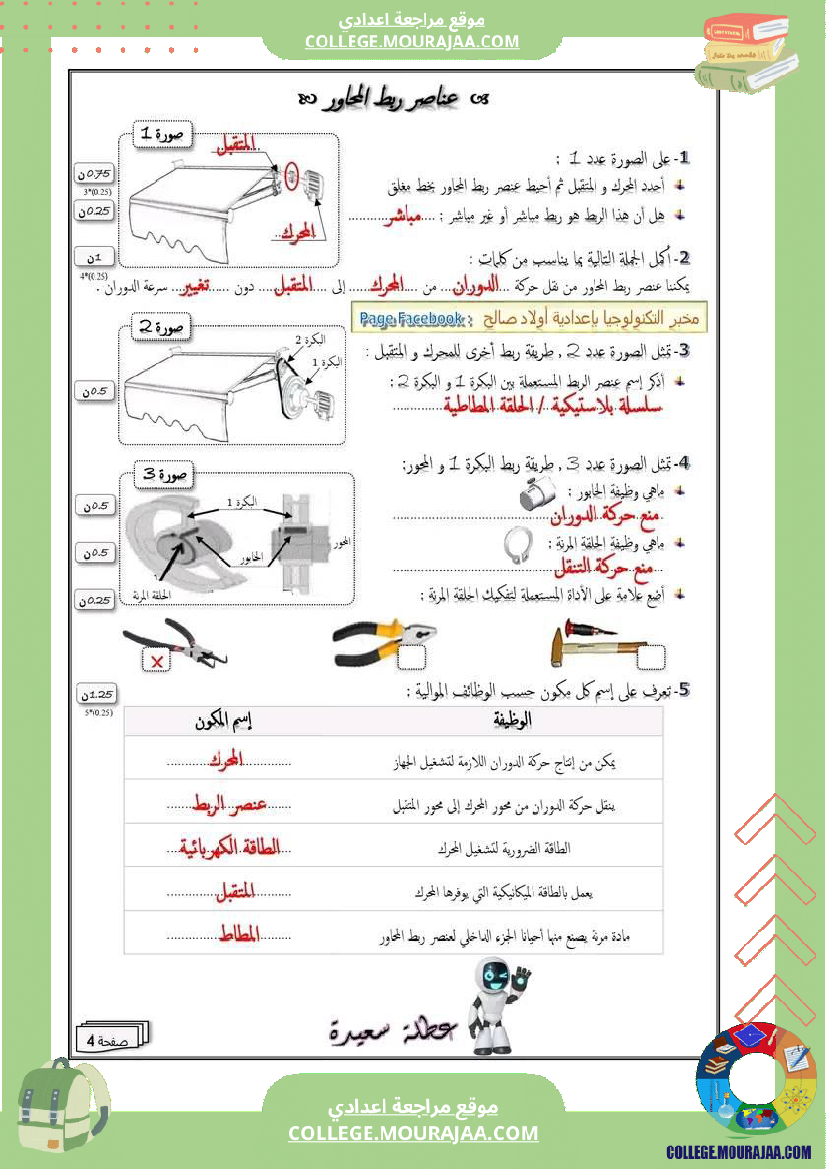 موقع مراجعة اعدادي
COLLEGE.MOURAJAA.COM
عناصر ربط المحاور
صورة 1
المتقبل
المحرك
0.75ن
3*(0.25)
0.25ن
1- على الصورة عدد 1 :
أحدد المحرك و المتقبل ثم أحيط عنصر ربط المحاور بخط مغلق
هل أن هذا الربط هو ربط مباشر أو غير مباشر : ....مباشر............
1ن
4*(0.25)
2- أكمل الجملة التالية بما يناسب من كلمات :
يمكننا عنصر ربط المحاور من نقل حركة ...الدوران.... من ...المحرك.... إلى ....المتقبل.... دون ....تغيير... سرعة الدوران .
مخبر التكنولوجيا بإعدادية أولاد صالح : Page Facebook
صورة 2
البكرة 2
البكرة 1
0.5ن
3- تمثل الصورة عدد 2 , طريقة ربط أخرى للمحرك و المتقبل :
أذكر إسم عنصر الربط المستعملة بين البكرة 1 و البكرة 2 :
سلسلة بلاستيكية / الحلقة المطاطية
صورة 3
البكرة 1
المحور
الخابور
الحلقة المرنة
4- تمثل الصورة عدد 3 , طريقة ربط البكرة 1 و المحور:
0.5ن
ماهي وظيفة الخابور :
منع حركة الدوران
0.5ن
ماهي وظيفة الحلقة المرنة :
منع حركة التنقل
0.25ن
أضع علامة على الأداة المستعملة لتفكيك الحلقة المرنة :
x
1.25ن
5*(0.25)
5- تعرف على إسم كل مكون حسب الوظائف الموالية :
الوظيفة إسم المكون
يمكن من إنتاج حركة الدوران اللازمة لتشغيل الجهاز المحرك
ينقل حركة الدوران من محور المحرك إلى محور المتقبل عنصر الربط
الطاقة الضرورية لتشغيل المحرك الطاقة الكهربائية
يعمل بالطاقة الميكانيكية التي يوفرها المحرك المتقبل
مادة مرنة يصنع منها أحيانا الجزء الداخلي لعنصر ربط المحاور المطاط
عطلة سعيدة
صفحة 4
موقع مراجعة اعدادي
COLLEGE.MOURAJAA.COM
COLLEGE.MOURAJAA.COM